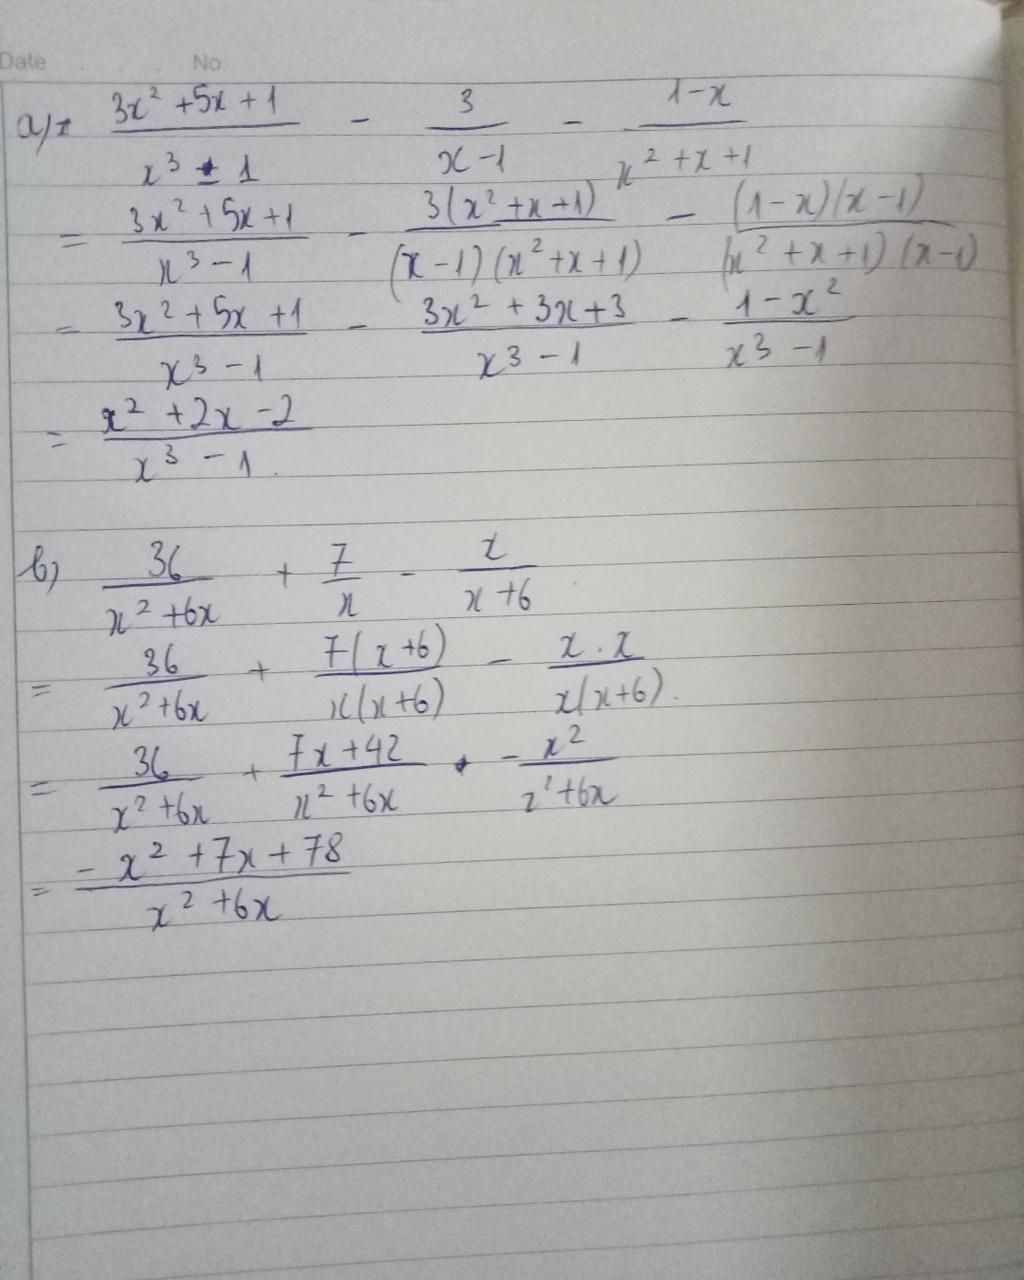 Date . . . No.
a) (3x² + 5x + 1)/(x³ - 1) - 3/(x - 1) - (1 - x)/(x² + x + 1)
= (3x² + 5x + 1)/(x³ - 1) - 3(x² + x + 1)/((x - 1)(x² + x + 1)) - (1 - x)(x - 1)/((x² + x + 1)(x - 1))
= (3x² + 5x + 1)/(x³ - 1) - (3x² + 3x + 3)/(x³ - 1) - (1 - x²)/(x³ - 1)
= (x² + 2x - 2)/(x³ - 1).
b) 36/(x² + 6x) + 7/x - x/(x + 6)
= 36/(x² + 6x) + 7(x + 6)/(x(x + 6)) - x . x/(x(x + 6)).
= 36/(x² + 6x) + (7x + 42)/(x² + 6x) - x²/(x² + 6x)
= (- x² + 7x + 78)/(x² + 6x)